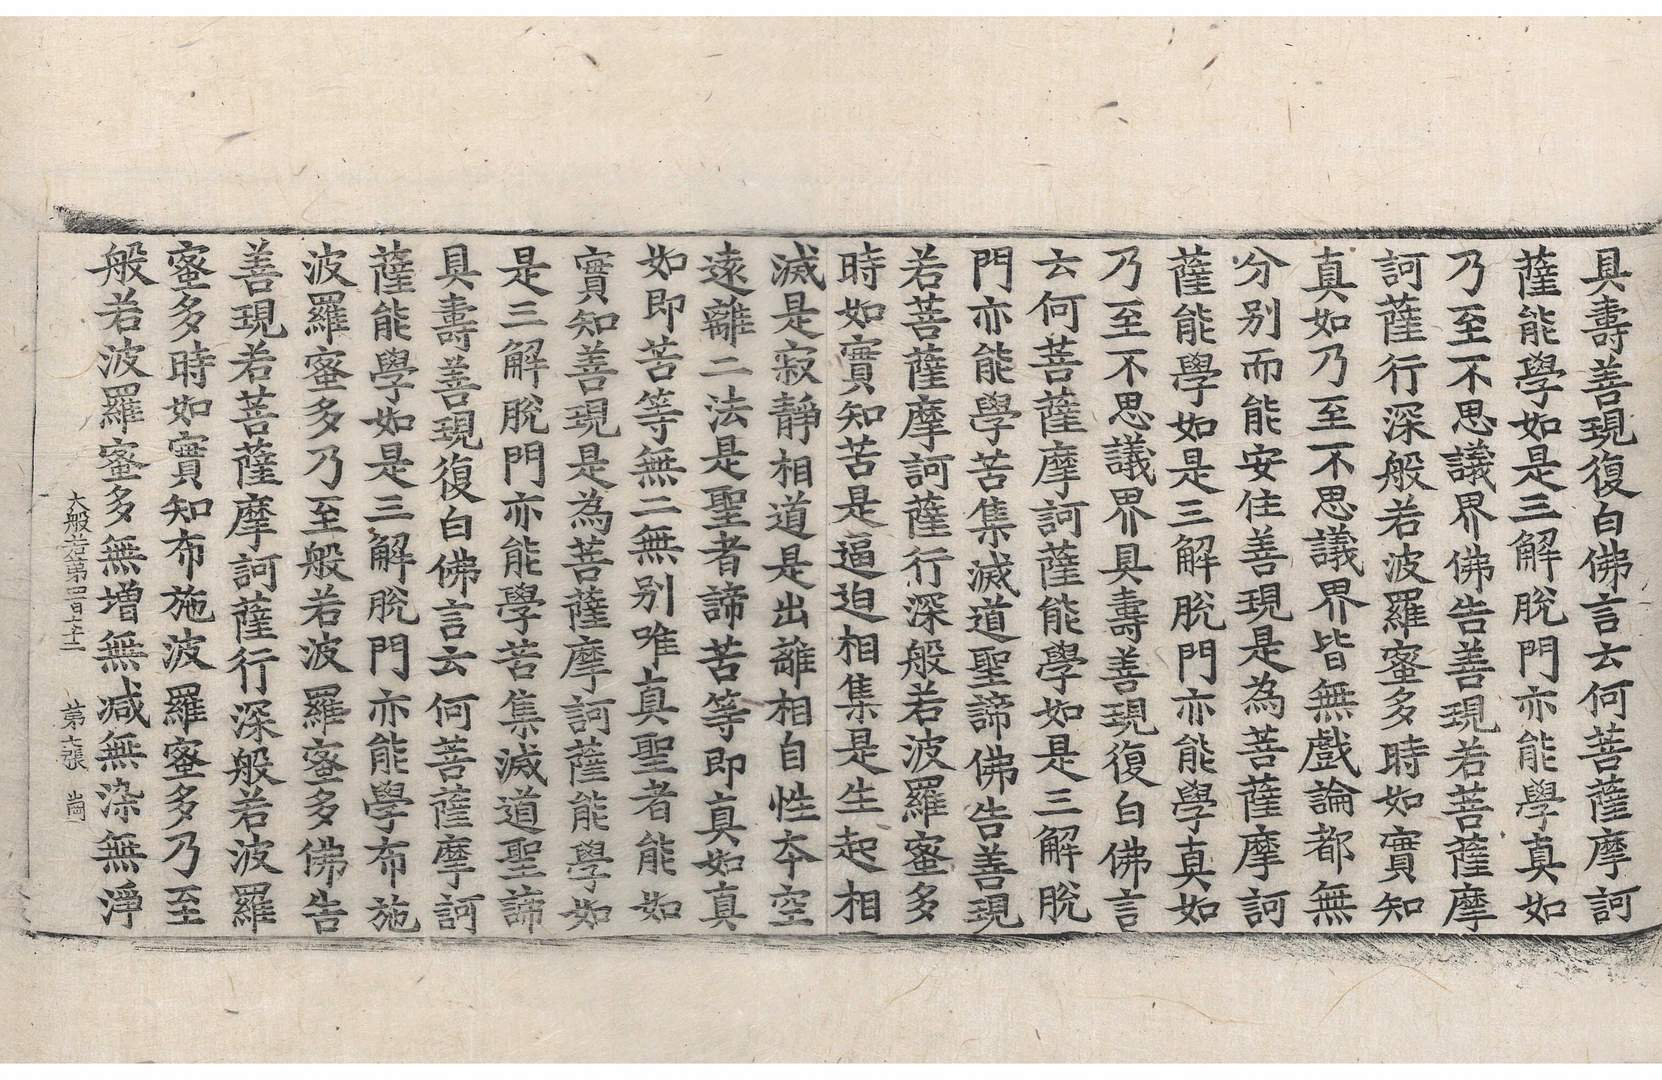 具壽善現復白佛言云何菩薩摩訶
薩能學如是三解脫門亦能學真如
乃至不思議界佛告善現若菩薩摩
訶薩行深般若波羅蜜多時如實知
真如乃至不思議界皆無戲論都無
分別而能安住善現是為菩薩摩訶
薩能學如是三解脫門亦能學真如
乃至不思議界具壽善現復白佛言
云何菩薩摩訶薩能學如是三解脫
門亦能學苦集滅道聖諦佛告善現
若菩薩摩訶薩行深般若波羅蜜多
時如實知苦是逼迫相集是生起相
滅是寂靜相道是出離相自性本空
遠離二法是聖者諦苦等即真如真
如即苦等無二無別唯真聖者能如
實知善現是為菩薩摩訶薩能學如
是三解脫門亦能學苦集滅道聖諦
具壽善現復白佛言云何菩薩摩訶
薩能學如是三解脫門亦能學布施
波羅蜜多乃至般若波羅蜜多佛告
善現若菩薩摩訶薩行深般若波羅
蜜多時如實知布施波羅蜜多乃至
般若波羅蜜多無增無減無染無淨
大般若第四百七十二 第七張 崗